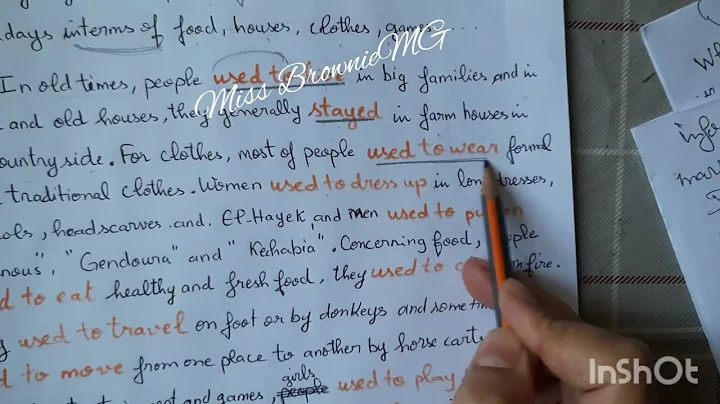 days interms of food, houses, clothes, games.....
In old times, people used to in big families and in
and old houses, they generally stayed in farm houses in
ountryside. For clothes, most of people used to wear formal
traditional clothes. Women used to dress up in long dresses,
ols, headscarves and El-Hayek, and men used to put on
nous", "Gendoura" and "Kechabia". Concerning food, people
d to eat healthy and fresh food, they used to on fire.
used to travel on foot or by donkeys and sometimes
d to move from one place to another by horse cart
and games, girls people used to play
Miss BrownieMG
wh
in
infor
mar
InShOt